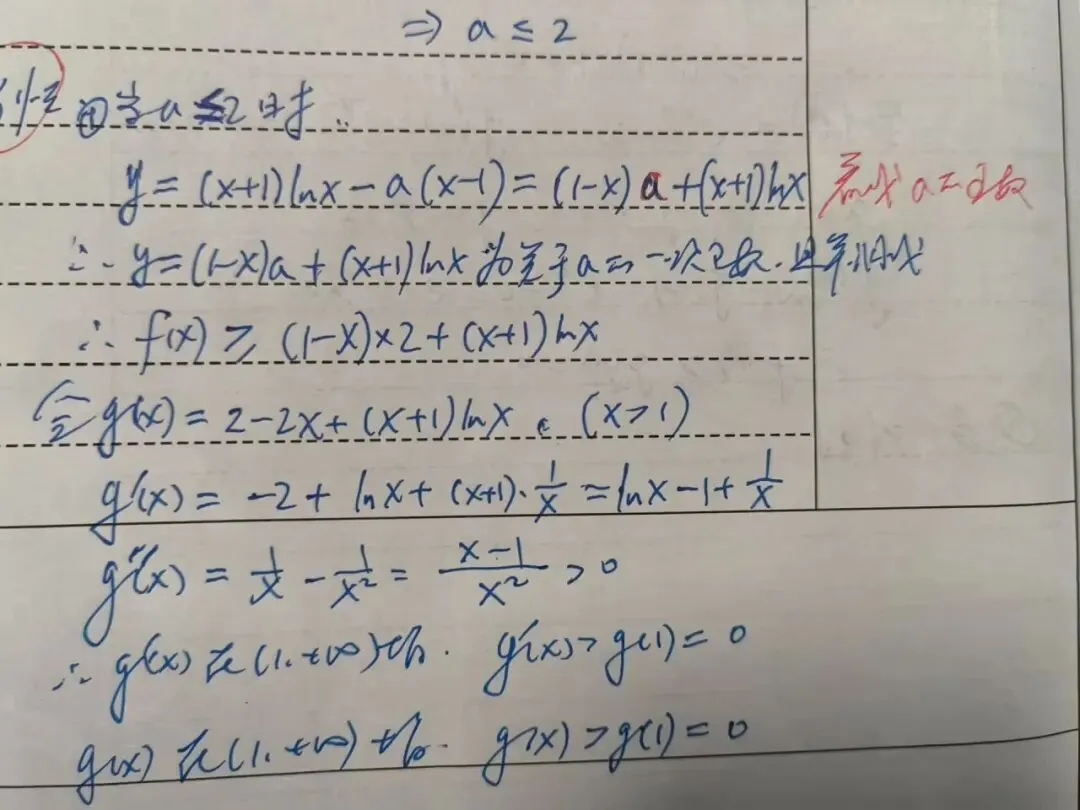 ⇒ a ≤ 2
①当a≤2时
y = (x+1)lnx - a(x-1) = (1-x)a + (x+1)lnx 看成a的函数
∴ y = (1-x)a + (x+1)lnx 为关于a的一次函数. 且单调减
∴ f(x) ≥ (1-x)×2 + (x+1)lnx
令 g(x) = 2-2x + (x+1)lnx (x>1)
g'(x) = -2 + lnx + (x+1)·1/x = lnx - 1 + 1/x
g''(x) = 1/x - 1/x² = (x-1)/x² > 0
∴ g'(x) 在(1.+∞) g'(x) > g'(1) = 0
g(x) 在(1.+∞) g(x) > g(1) = 0